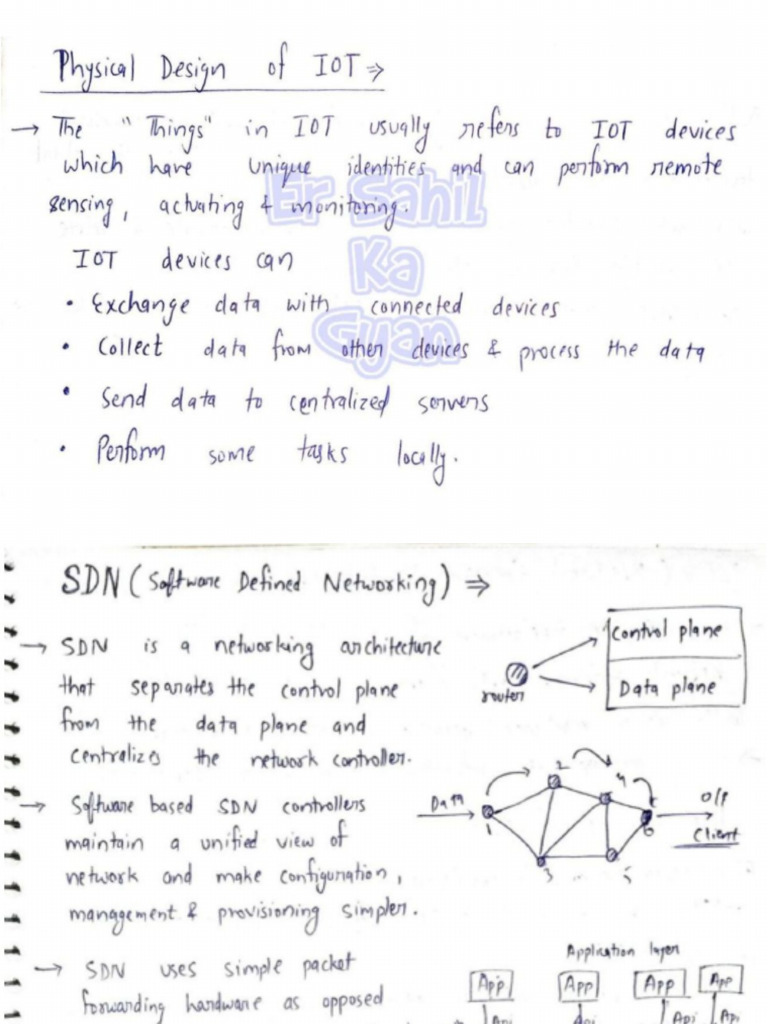 Physical Design of IOT ⇒
→ The "Things" in IOT usually refers to IOT devices
which have unique identities and can perform remote
sensing, actuating & monitoring.
Er Sahil
Ka
Gyan
IOT devices can
• Exchange data with connected devices
• Collect data from other devices & process the data
• Send data to centralized servers
• Perform some tasks locally.
SDN (Software Defined Networking) ⇒
→ SDN is a networking architecture
that separates the control plane
from the data plane and
centralizes the network controller.
router
Control plane
Data plane
→ Software based SDN controllers
maintain a unified view of
network and make configuration,
management & provisioning simpler.
Data
1
2
3
4
5
6
O/P
Client
→ SDN uses simple packet
forwarding hardware as opposed
Application layer
App App App App
Api Api Api Api